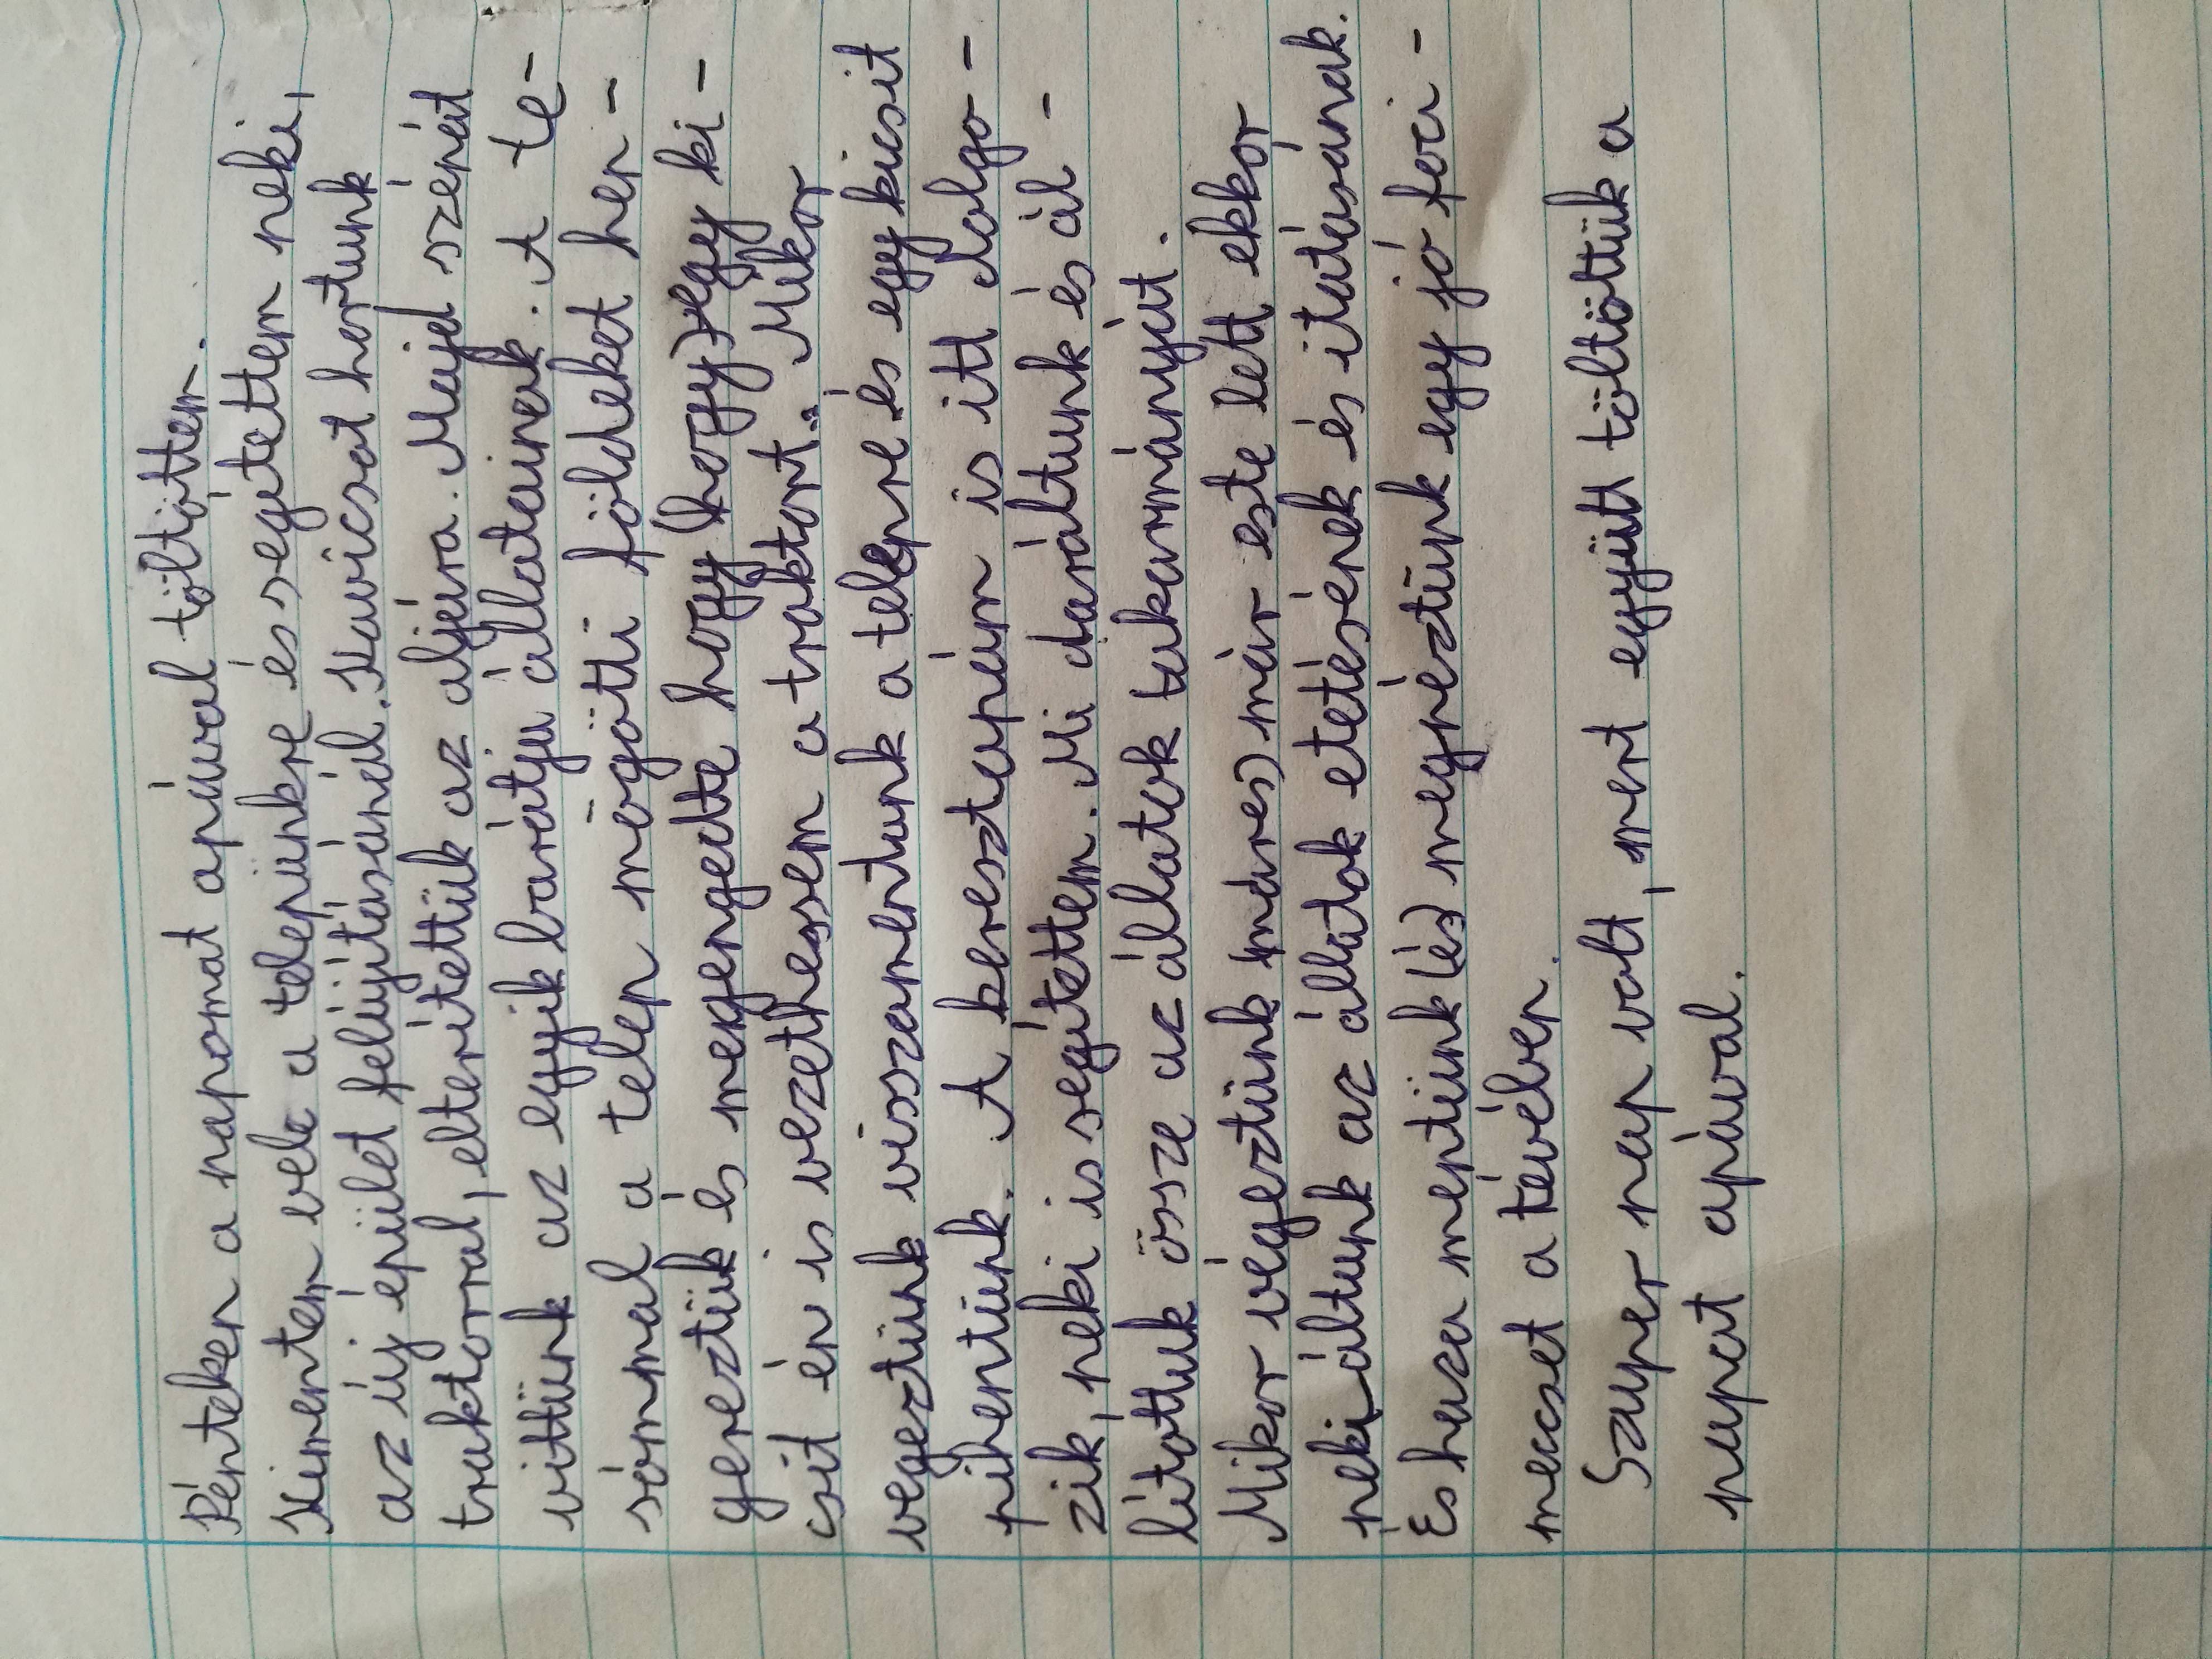 Pénteken a napomat apával töltöttem.
Kimentem vele a telepünkre és segítettem neki,
az új épület felújításánál. Kavicsot hortunk
traktorral, elterítettük az aljéra. Majd szénát
vittünk az egyik barátja állatainak. A te-
sómmal a telep mögötti földeket hen-
gereztük és megengedte hogy (hogy) egy ki-
csit én is vezethessem a traktort. Mikor
vegeztünk visszamentunk a telepre és egy kicsit
pihentünk. A keresztapám is itt dolgo-
zik, neki is segítettem. Mi daráltunk és ál-
lítottuk össze az állatok takarmányát.
Mikor végeztünk már este lett ekkor
nekiáltunk az állatok etetésének és itatásának.
Es haza mentünk (és) megnéztünk egy jó foci-
meccset a tévében.
Szuper nap volt, mert együtt töltöttük a
napot apával.